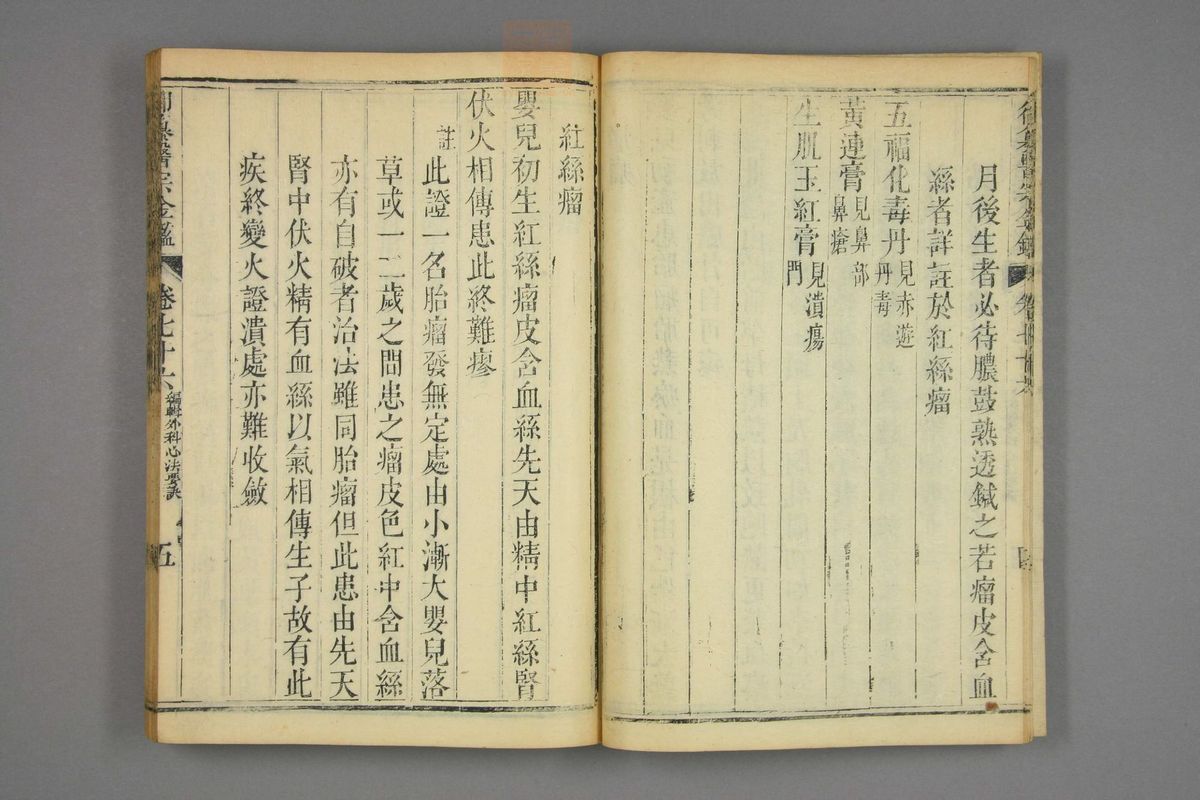 月後生者必待膿鼓熟透鍼之若瘤皮含血
絲者詳註於紅絲瘤
五福化毒丹見赤遊丹毒
黃連膏見鼻部鼻瘡
生肌玉紅膏見潰瘍門
紅絲瘤
嬰兒初生紅絲瘤皮含血絲先天由精中紅絲腎
伏火相傳患此終難瘳
註此證一名胎瘤發無定處由小漸大嬰兒落
草或一二歲之間患之瘤皮色紅中含血絲
亦有自破者治法雖同胎瘤但此患由先天
腎中伏火精有血絲以氣相傳生子故有此
疾終變火證潰處亦難收斂
御纂醫宗金鑑 卷七十六 編輯外科心法要訣 五